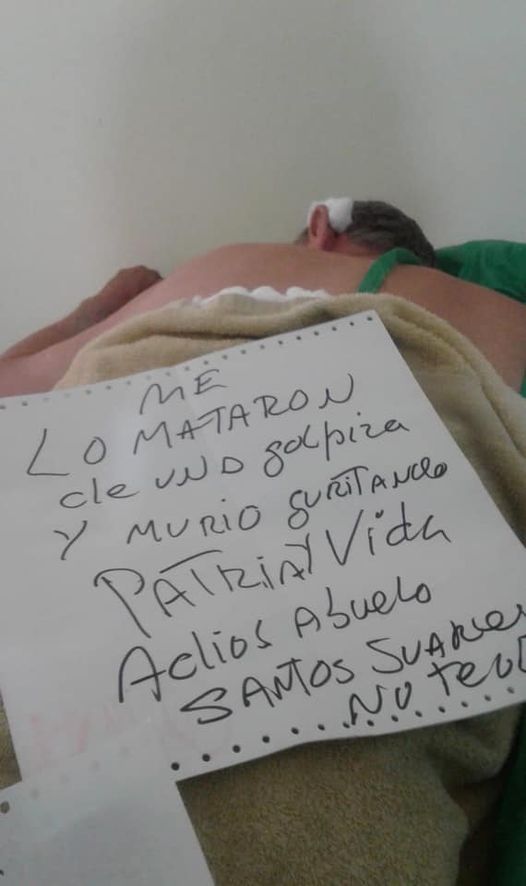 ME
LO MATARON
de UNA golpiza
Y MURIO GURITANdo
PATRIA Y Vida
Adios Abuelo
SANTOS SUAREZ
NO